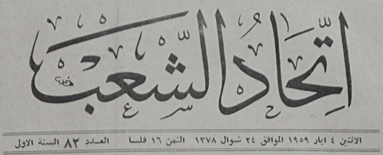 اتّحادُ الشَّعب
الاثنين ٤ ايار ١٩٥٩ الموافق ٢٤ شوال ١٣٧٨ الثمن ١٦ فلسا العدد ٨٢ السنة الاولى